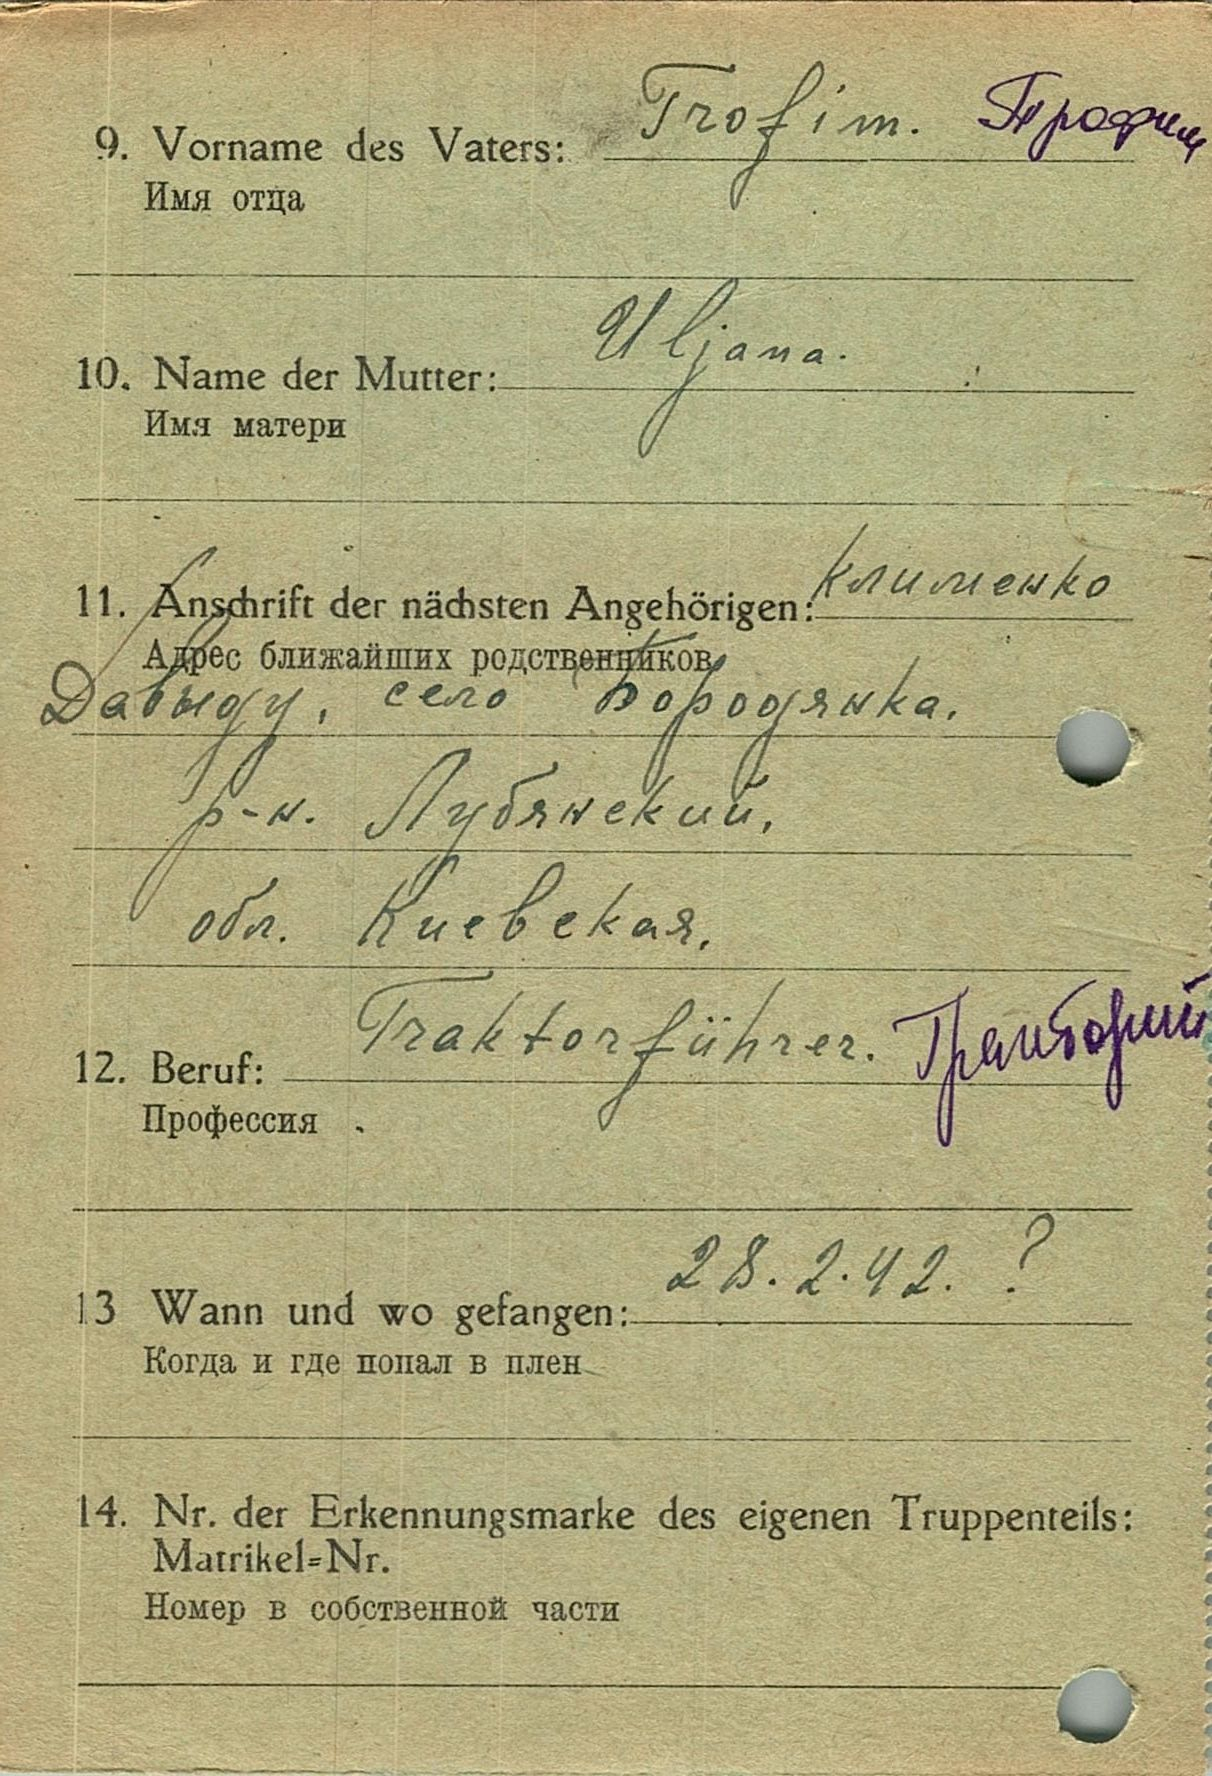 9. Vorname des Vaters: Trofim. Трофим
Имя отца
10. Name der Mutter: Uljana.
Имя матери
11. Anschrift der nächsten Angehörigen: Клименко
Адрес ближайших родственников
Давыду, село Бородянка.
р-н. Лубянский,
обл. Киевская.
12. Beruf: Traktorführer.
Профессия
13 Wann und wo gefangen: 28.2.42. ?
Когда и где попал в плен
14. Nr. der Erkennungsmarke des eigenen Truppenteils:
Matrikel=Nr.
Номер в собственной части